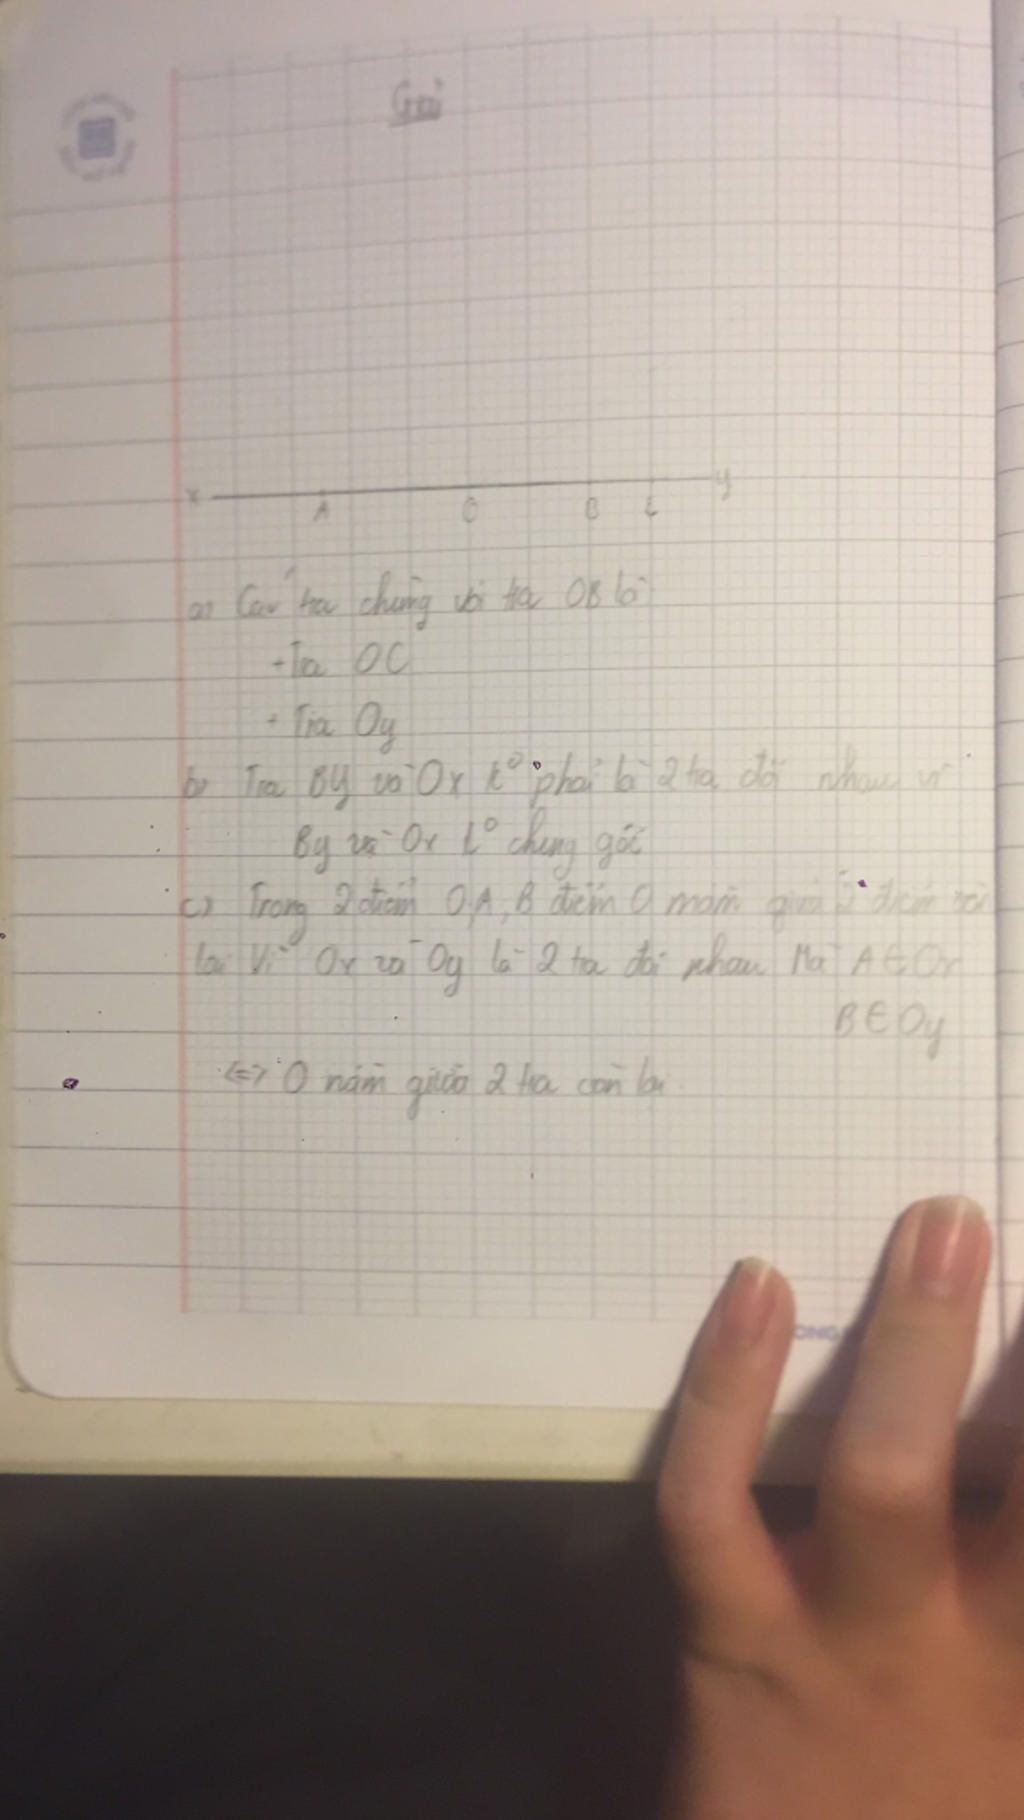 Giải
x A O B C y
a) Các tia chung với tia OB là
+ Tia OC
+ Tia Oy
b) Tia BY và Ox k° phải là 2 tia đối nhau vì
By và Ox k° chung gốc
c) Trong 2 điểm O, A, B điểm O nằm giữa 2 điểm còn
lại Vì Ox và Oy là 2 tia đối nhau Mà A ∈ Ox
B ∈ Oy
<=> O nằm giữa 2 tia còn lại